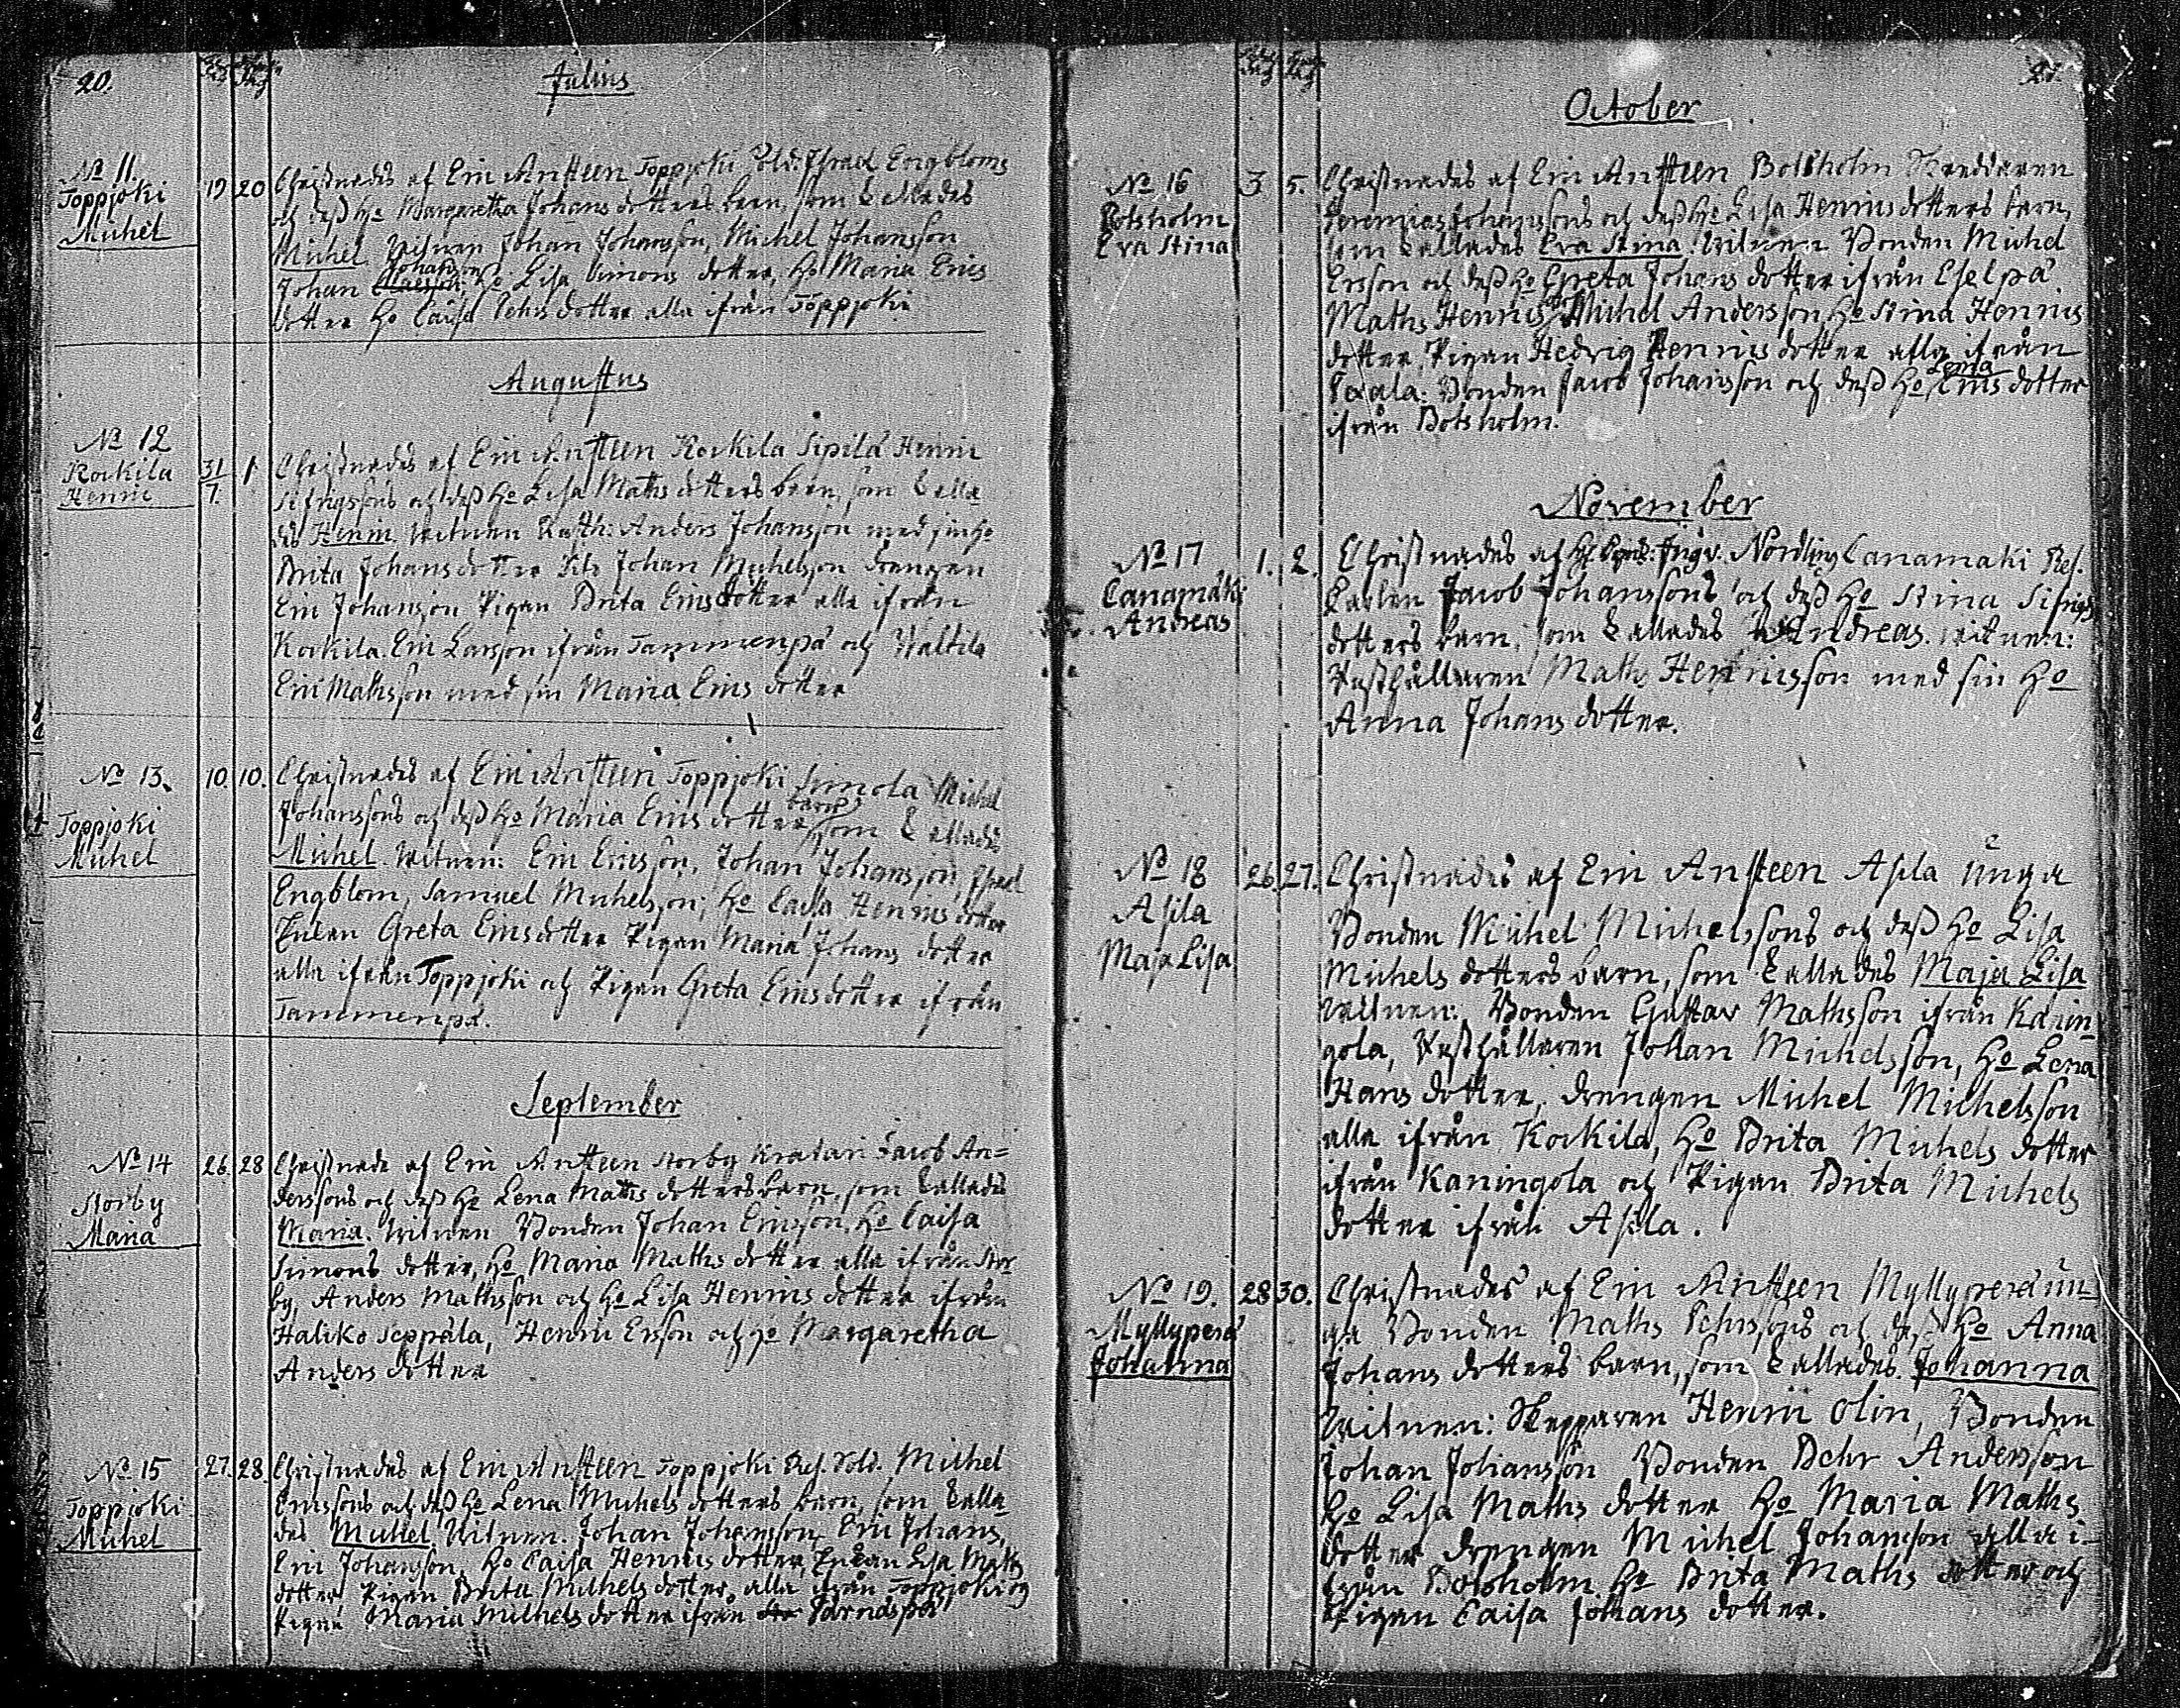 20.
Julius
No 11.
Toppjoki
Michel
19 20
Christnades af Eric Ansteen Toppjoki Sold: Israel Engbloms
och dess Ho Margaretha Johans dotters barn, som kallades
Michel. Witnen Johan Johansson, Michel Johansson
Johan Johansson Ho Lisa Simons dotter, Ho Maria Erics
dotter Ho Caisa Pehrs dotter alla ifrån Toppjoki
Augustus
No 12
Kockila
Henric
31/7. 1
Christnades af Eric Ansteen Kockila Sipilä Henric
Sifrigssons och dess Ho Lisa Maths dotters barn, som kalla
des Henric. Witnen Rusth: Anders Johansson med sin Ho
Brita Johansdotter Johan Michelsson drengen
Eric Johansson Pigan Brita Ericsdotter alla ifrån
Kockila. Eric Larsson ifrån Tammenpä och Waltila
Eric Mathsson med sin Maria Erics dotter
No 13.
Toppjoki
Michel
10. 10.
Christnades af Eric Ansteen Toppjoki Simola Michel
Johanssons och dess Ho Maria Erics dotters barn, som kallades
Michel. Witnen: Eric Ericsson, Johan Johansson, Israel
Engblom, Samuel Michelsson; Ho Caisa Henrics dotter
Enkan Greta Ericsdotter Pigan Maria Johans dotter
alla ifrån Toppjoki och Pigan Greta Ericsdotter ifrån
Tammenpä.
September
No 14
Storby
Maria
26. 28
Christnade af Eric Ansteen Storby Jacob An=
derssons och dess Ho Lena Maths dotters barn, som kallades
Maria. Witnen Bonden Johan Ericsson, Ho Caisa
Simons dotter, Ho Maria Maths dotter alla ifrån Stor
by, Anders Mathsson och Ho Lisa Henrics dotter ifrån
Haliko Seppälä, Henric Ersson och Ho Margaretha
Anders dotter
No 15
Toppjoki
Michel
27. 28
Christnades af Eric Ansteen Toppjoki Ref. Sold. Michel
Ericssons och dess Ho Lena Michels dotters barn, som kalla
des Michel. Witnen. Johan Johansson, Eric Johans,
Eric Johansson, Ho Caisa Henrics dotter, Enkan Lisa Maths
dotter, Pigan Brita Michels dotter, alla ifrån Toppjoki och
Pigan Maria Michels dotter ifrån Järnäspä
21.
October
No 16
Botsholm
Eva Stina
3. 5.
Christnades af Eric Ansteen Botsholm Skreddaren
Jeremias Johanssons och dess Ho Lisa Henricsdotters barn,
som kallades Eva Stina. Witnen Bonden Michel
Ersson och dess Ho Greta Johans dotter ifrån Eselpä
Maths Henricsson Michel Andersson Ho Stina Henrics
dotter, Pigan Hedvig Henricsdotter alla ifrån
Bonden Jacob Johansson och dess Ho Lena Erics dotter
ifrån Botsholm.
November
No 17
Canamäki
Andreas
1. 2.
Christnades af Nordling Canamäki Ref.
Karlen Jacob Johanssons och dess Ho Stina Sifrigs
dotters barn, som kallades Andreas. Witnen:
Rusthållaren Maths Henricsson med sin Ho
Anna Johans dotter.
No 18
Asila
Maja Lisa
26. 27.
Christnades af Eric Ansteen Asila unga
Bonden Michel Michelssons och dess Ho Lisa
Michels dotters barn, som kallades Maja Lisa
Witnen: Bonden Gustav Mathsson ifrån Kanin
gola, Rusthållaren Johan Michelsson, Ho Lena
Hans dotter, drengen Michel Michelsson
alla ifrån Kockila, Ho Brita Michels dotter
ifrån Kaningola och Pigan Brita Michels
dotter ifrån Asila.
No 19.
Myllyperä
Johanna
28 30.
Christnades af Eric Ansteen Myllyperä un=
ga Bonden Maths Pehrssons och dess Ho Anna
Johans dotters barn, som kallades Johanna
Witnen: Skepparen Henric Olin, Bonden
Johan Johansson Bonden Pehr Andersson
Ho Lisa Maths dotter Ho Maria Maths
dotter drengen Michel Johansson alla i=
från Botsholm. Ho Brita Maths dotter och
Pigan Caisa Johans dotter.